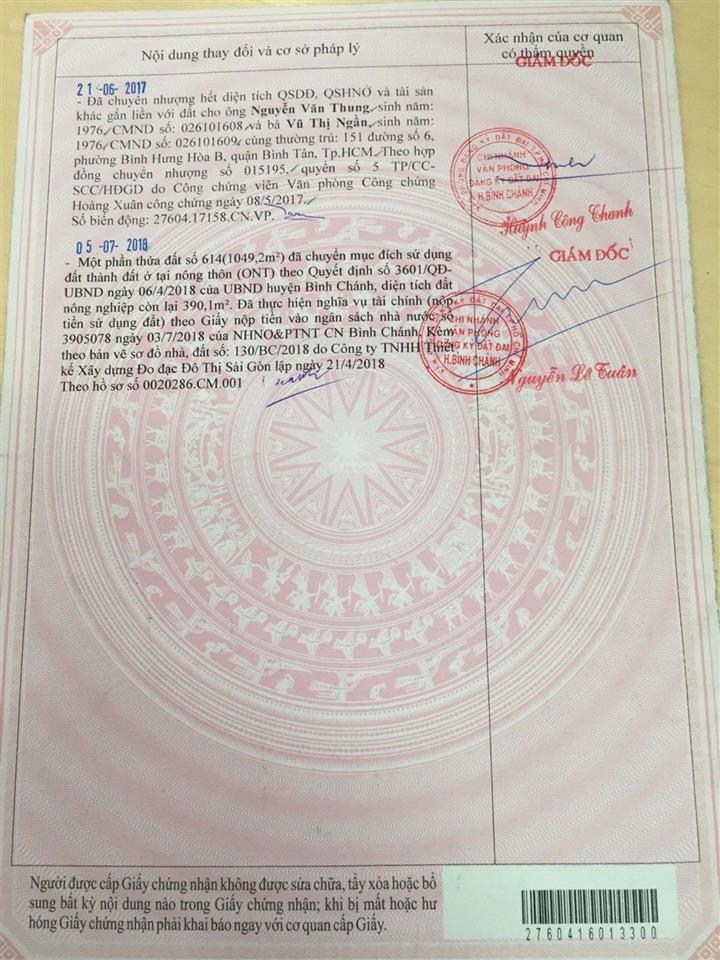 Nội dung thay đổi và cơ sở pháp lý
Xác nhận của cơ quan
có thẩm quyền
21-06-2017
- Đã chuyển nhượng hết diện tích QSDĐ, QSHNỞ và tài sản
khác gắn liền với đất cho ông Nguyễn Văn Thung, sinh năm:
1976, CMND số: 026101608 và bà Vũ Thị Ngần, sinh năm:
1976, CMND số: 026101609; cùng thường trú: 151 đường số 6,
phường Bình Hưng Hòa B, quận Bình Tân, Tp.HCM. Theo hợp
đồng chuyển nhượng số 015195, quyển số 5 TP/CC-
SCC/HĐGD do Công chứng viên Văn phòng Công chứng
Hoàng Xuân công chứng ngày 08/5/2017.
Số biến động: 27604.17158.CN.VP.
GIÁM ĐỐC
CHI NHÁNH
VĂN PHÒNG
ĐĂNG KÝ ĐẤT ĐAI
H.BÌNH CHÁNH
Huỳnh Công Chanh
05-07-2018
- Một phần thửa đất số 614(1049,2m²) đã chuyển mục đích sử dụng
đất thành đất ở tại nông thôn (ONT) theo Quyết định số 3601/QĐ-
UBND ngày 06/4/2018 của UBND huyện Bình Chánh, diện tích đất
nông nghiệp còn lại 390,1m². Đã thực hiện nghĩa vụ tài chính (nộp
tiền sử dụng đất) theo Giấy nộp tiền vào ngân sách nhà nước số
3905078 ngày 03/7/2018 của NHNO&PTNT CN Bình Chánh. Kèm
theo bản vẽ sơ đồ nhà, đất số: 130/BC/2018 do Công ty TNHH Thiết
kế Xây dựng Đo đạc Đô Thị Sài Gòn lập ngày 21/4/2018
Theo hồ sơ số 0020286.CM.001
GIÁM ĐỐC
CHI NHÁNH
VĂN PHÒNG
ĐĂNG KÝ ĐẤT ĐAI
H.BÌNH CHÁNH
Nguyễn Lê Tuân
Người được cấp Giấy chứng nhận không được sửa chữa, tẩy xóa hoặc bổ
sung bất kỳ nội dung nào trong Giấy chứng nhận; khi bị mất hoặc hư
hỏng Giấy chứng nhận phải khai báo ngay với cơ quan cấp Giấy.
2760416013300